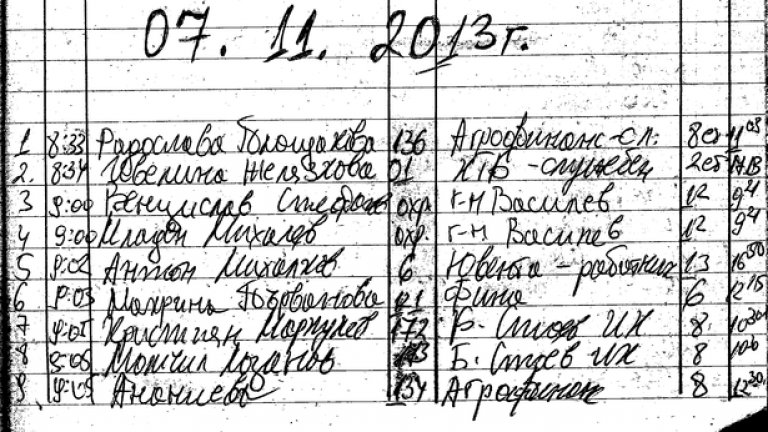 07. 11. 2013г.
1 8:33 Радослава 136 Агрофинанс-сл. 8ет 11 05
2. 8:34 Ювелина Желязкова 01 - служебен 2ет
3 9:00 Венцислав Стефанов охр. г-н Василев 12 9 24
4 9:00 Младен Михалев охр. г-н Василев 12 9 24
5 9:02 Антон Михалков 6 Ювента - работник 13 16 50
6 9:03 Първанова 21 Фина 6 12 15
7 9:05 Кристиян 172 Б. Стоев ИХ 8 10 30
8 9:06 Момчил Б. Стоев ИХ 8
9 9:09 Ананиева 134 Агрофинанс 8 12 30